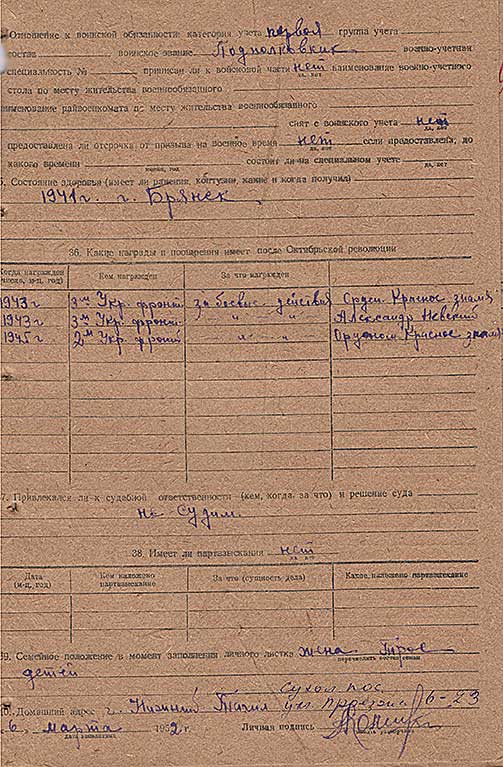 Отношение к воинской обязанности: категория учета первая группа учета
состав воинское звание Подполковник военно-учетная
специальность № приписан ли к войсковой части нет наименование военно-учетного
стола по месту жительства военнообязанного
наименование райвоенкомата по месту жительства военнообязанного
снят с воинского учета нет
да, нет
предоставлена ли отсрочка от призыва на военное время нет если предоставлена, до
да, нет
какого времени состоит ли на специальном учете
месяц, год да, нет
Состояние здоровья (имеет ли ранения, контузии, какие и когда получил)
1941 г. г. Брянск
36. Какие награды и поощрения имеет после Октябрьской революции
Когда награжден (число, м-ц, год) Кем награжден За что награжден
1943 г Укр. фронт за боевые действия Орден Красное знамя
1943 г 3м Укр. фронт " " Александр Невский
1945 г 2м Укр. фронт " " Орденом Красное знамя
7. Привлекался ли к судебной ответственности (кем, когда, за что) и решение суда
не судим.
38. Имеет ли партвзыскания нет
да, нет
Дата (м-ц, год) Кем наложено партвзыскание За что (сущность дела) Какое наложено партвзыскание
39. Семейное положение в момент заполнения личного листка жена трое
перечислить состав семьи
детей
Сухол. пос.
Домашний адрес г. Нижний Тагил ул. 6-23
6 марта 1952 г. Личная подпись
дата заполнения